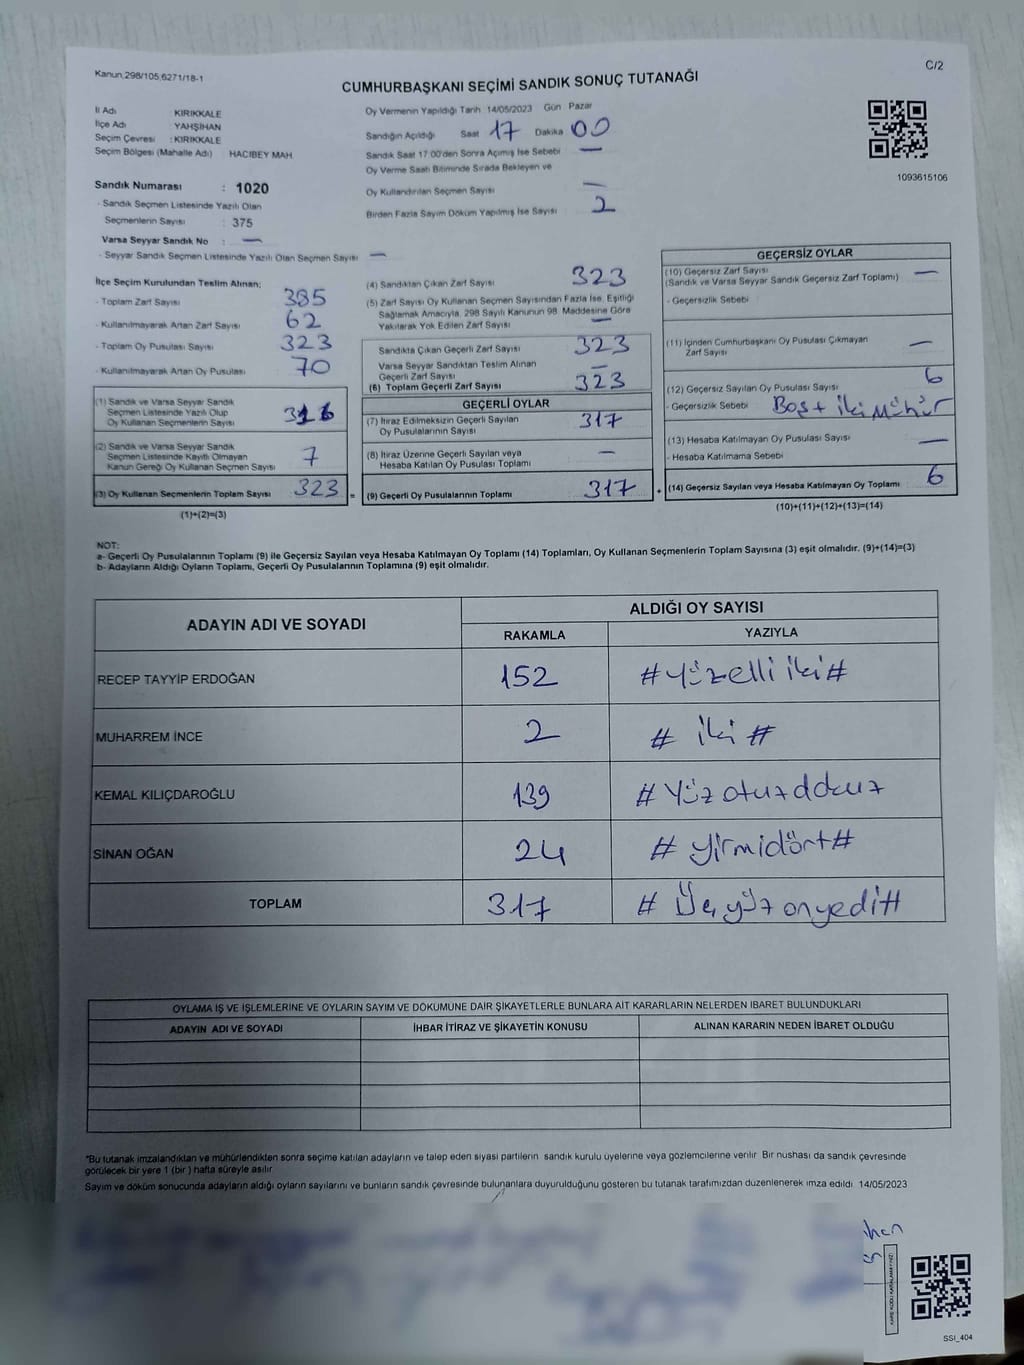 Kanun,298/105,6271/18-1
C/2
CUMHURBAŞKANI SEÇİMİ SANDIK SONUÇ TUTANAĞI
İl Adı KIRIKKALE
İlçe Adı YAHŞİHAN
Seçim Çevresi : KIRIKKALE
Seçim Bölgesi (Mahalle Adı) HACIBEY MAH.
Sandık Numarası : 1020
- Sandık Seçmen Listesinde Yazılı Olan
Seçmenlerin Sayısı : 375
Varsa Seyyar Sandık No : —
- Seyyar Sandık Seçmen Listesinde Yazılı Olan Seçmen Sayısı —
Oy Vermenin Yapıldığı Tarih 14/05/2023 Gün Pazar
Sandığın Açıldığı Saat 17 Dakika 00
Sandık Saat 17:00'den Sonra Açılmış İse Sebebi —
Oy Verme Saati Bitiminde Sırada Bekleyen ve
Oy Kullandırılan Seçmen Sayısı —
Birden Fazla Sayım Döküm Yapılmış İse Sayısı 2
1093615106
İlçe Seçim Kurulundan Teslim Alınan;
- Toplam Zarf Sayısı 385
- Kullanılmayarak Artan Zarf Sayısı 62
- Toplam Oy Pusulası Sayısı 323
- Kullanılmayarak Artan Oy Pusulası 70
(1) Sandık ve Varsa Seyyar Sandık
Seçmen Listesinde Yazılı Olup
Oy Kullanan Seçmenlerin Sayısı 316
(2) Sandık ve Varsa Seyyar Sandık
Seçmen Listesinde Kayıtlı Olmayan
Kanun Gereği Oy Kullanan Seçmen Sayısı 7
(3) Oy Kullanan Seçmenlerin Toplam Sayısı 323 =
(1)+(2)=(3)
(4) Sandıktan Çıkan Zarf Sayısı 323
(5) Zarf Sayısı Oy Kullanan Seçmen Sayısından Fazla İse, Eşitliği
Sağlamak Amacıyla, 298 Sayılı Kanunun 98. Maddesine Göre
Yakılarak Yok Edilen Zarf Sayısı —
Sandıkta Çıkan Geçerli Zarf Sayısı 323
Varsa Seyyar Sandıktan Teslim Alınan
Geçerli Zarf Sayısı —
(6) Toplam Geçerli Zarf Sayısı 323
GEÇERLİ OYLAR
(7) İtiraz Edilmeksizin Geçerli Sayılan
Oy Pusulalarının Sayısı 317
(8) İtiraz Üzerine Geçerli Sayılan veya
Hesaba Katılan Oy Pusulası Toplamı —
(9) Geçerli Oy Pusulalarının Toplamı 317 +
GEÇERSİZ OYLAR
(10) Geçersiz Zarf Sayısı
(Sandık ve Varsa Seyyar Sandık Geçersiz Zarf Toplamı) —
- Geçersizlik Sebebi
(11) İçinden Cumhurbaşkanı Oy Pusulası Çıkmayan
Zarf Sayısı —
(12) Geçersiz Sayılan Oy Pusulası Sayısı 6
- Geçersizlik Sebebi Boş + İki Mühür
(13) Hesaba Katılmayan Oy Pusulası Sayısı —
- Hesaba Katılmama Sebebi
(14) Geçersiz Sayılan veya Hesaba Katılmayan Oy Toplamı 6
(10)+(11)+(12)+(13)=(14)
NOT:
a- Geçerli Oy Pusulalarının Toplamı (9) ile Geçersiz Sayılan veya Hesaba Katılmayan Oy Toplamı (14) Toplamları, Oy Kullanan Seçmenlerin Toplam Sayısına (3) eşit olmalıdır. (9)+(14)=(3)
b- Adayların Aldığı Oyların Toplamı, Geçerli Oy Pusulalarının Toplamına (9) eşit olmalıdır.
ADAYIN ADI VE SOYADI
ALDIĞI OY SAYISI
RAKAMLA YAZIYLA
RECEP TAYYİP ERDOĞAN 152 #Yüzelli iki#
MUHARREM İNCE 2 # İki #
KEMAL KILIÇDAROĞLU 139 #Yüz otuzdokuz
SİNAN OĞAN 24 # yirmidört#
TOPLAM 317 # Üçyüz onyedi#
OYLAMA İŞ VE İŞLEMLERİNE VE OYLARIN SAYIM VE DÖKÜMÜNE DAİR ŞİKAYETLERLE BUNLARA AİT KARARLARIN NELERDEN İBARET BULUNDUKLARI
ADAYIN ADI VE SOYADI İHBAR İTİRAZ VE ŞİKAYETİN KONUSU ALINAN KARARIN NEDEN İBARET OLDUĞU
*Bu tutanak imzalandıktan ve mühürlendikten sonra seçime katılan adayların ve talep eden siyasi partilerin sandık kurulu üyelerine veya gözlemcilerine verilir. Bir nüshası da sandık çevresinde
görülecek bir yere 1 (bir) hafta süreyle asılır.
Sayım ve döküm sonucunda adayların aldığı oyların sayılarını ve bunların sandık çevresinde bulunanlara duyurulduğunu gösteren bu tutanak tarafımızdan düzenlenerek imza edildi. 14/05/2023
SSI_404